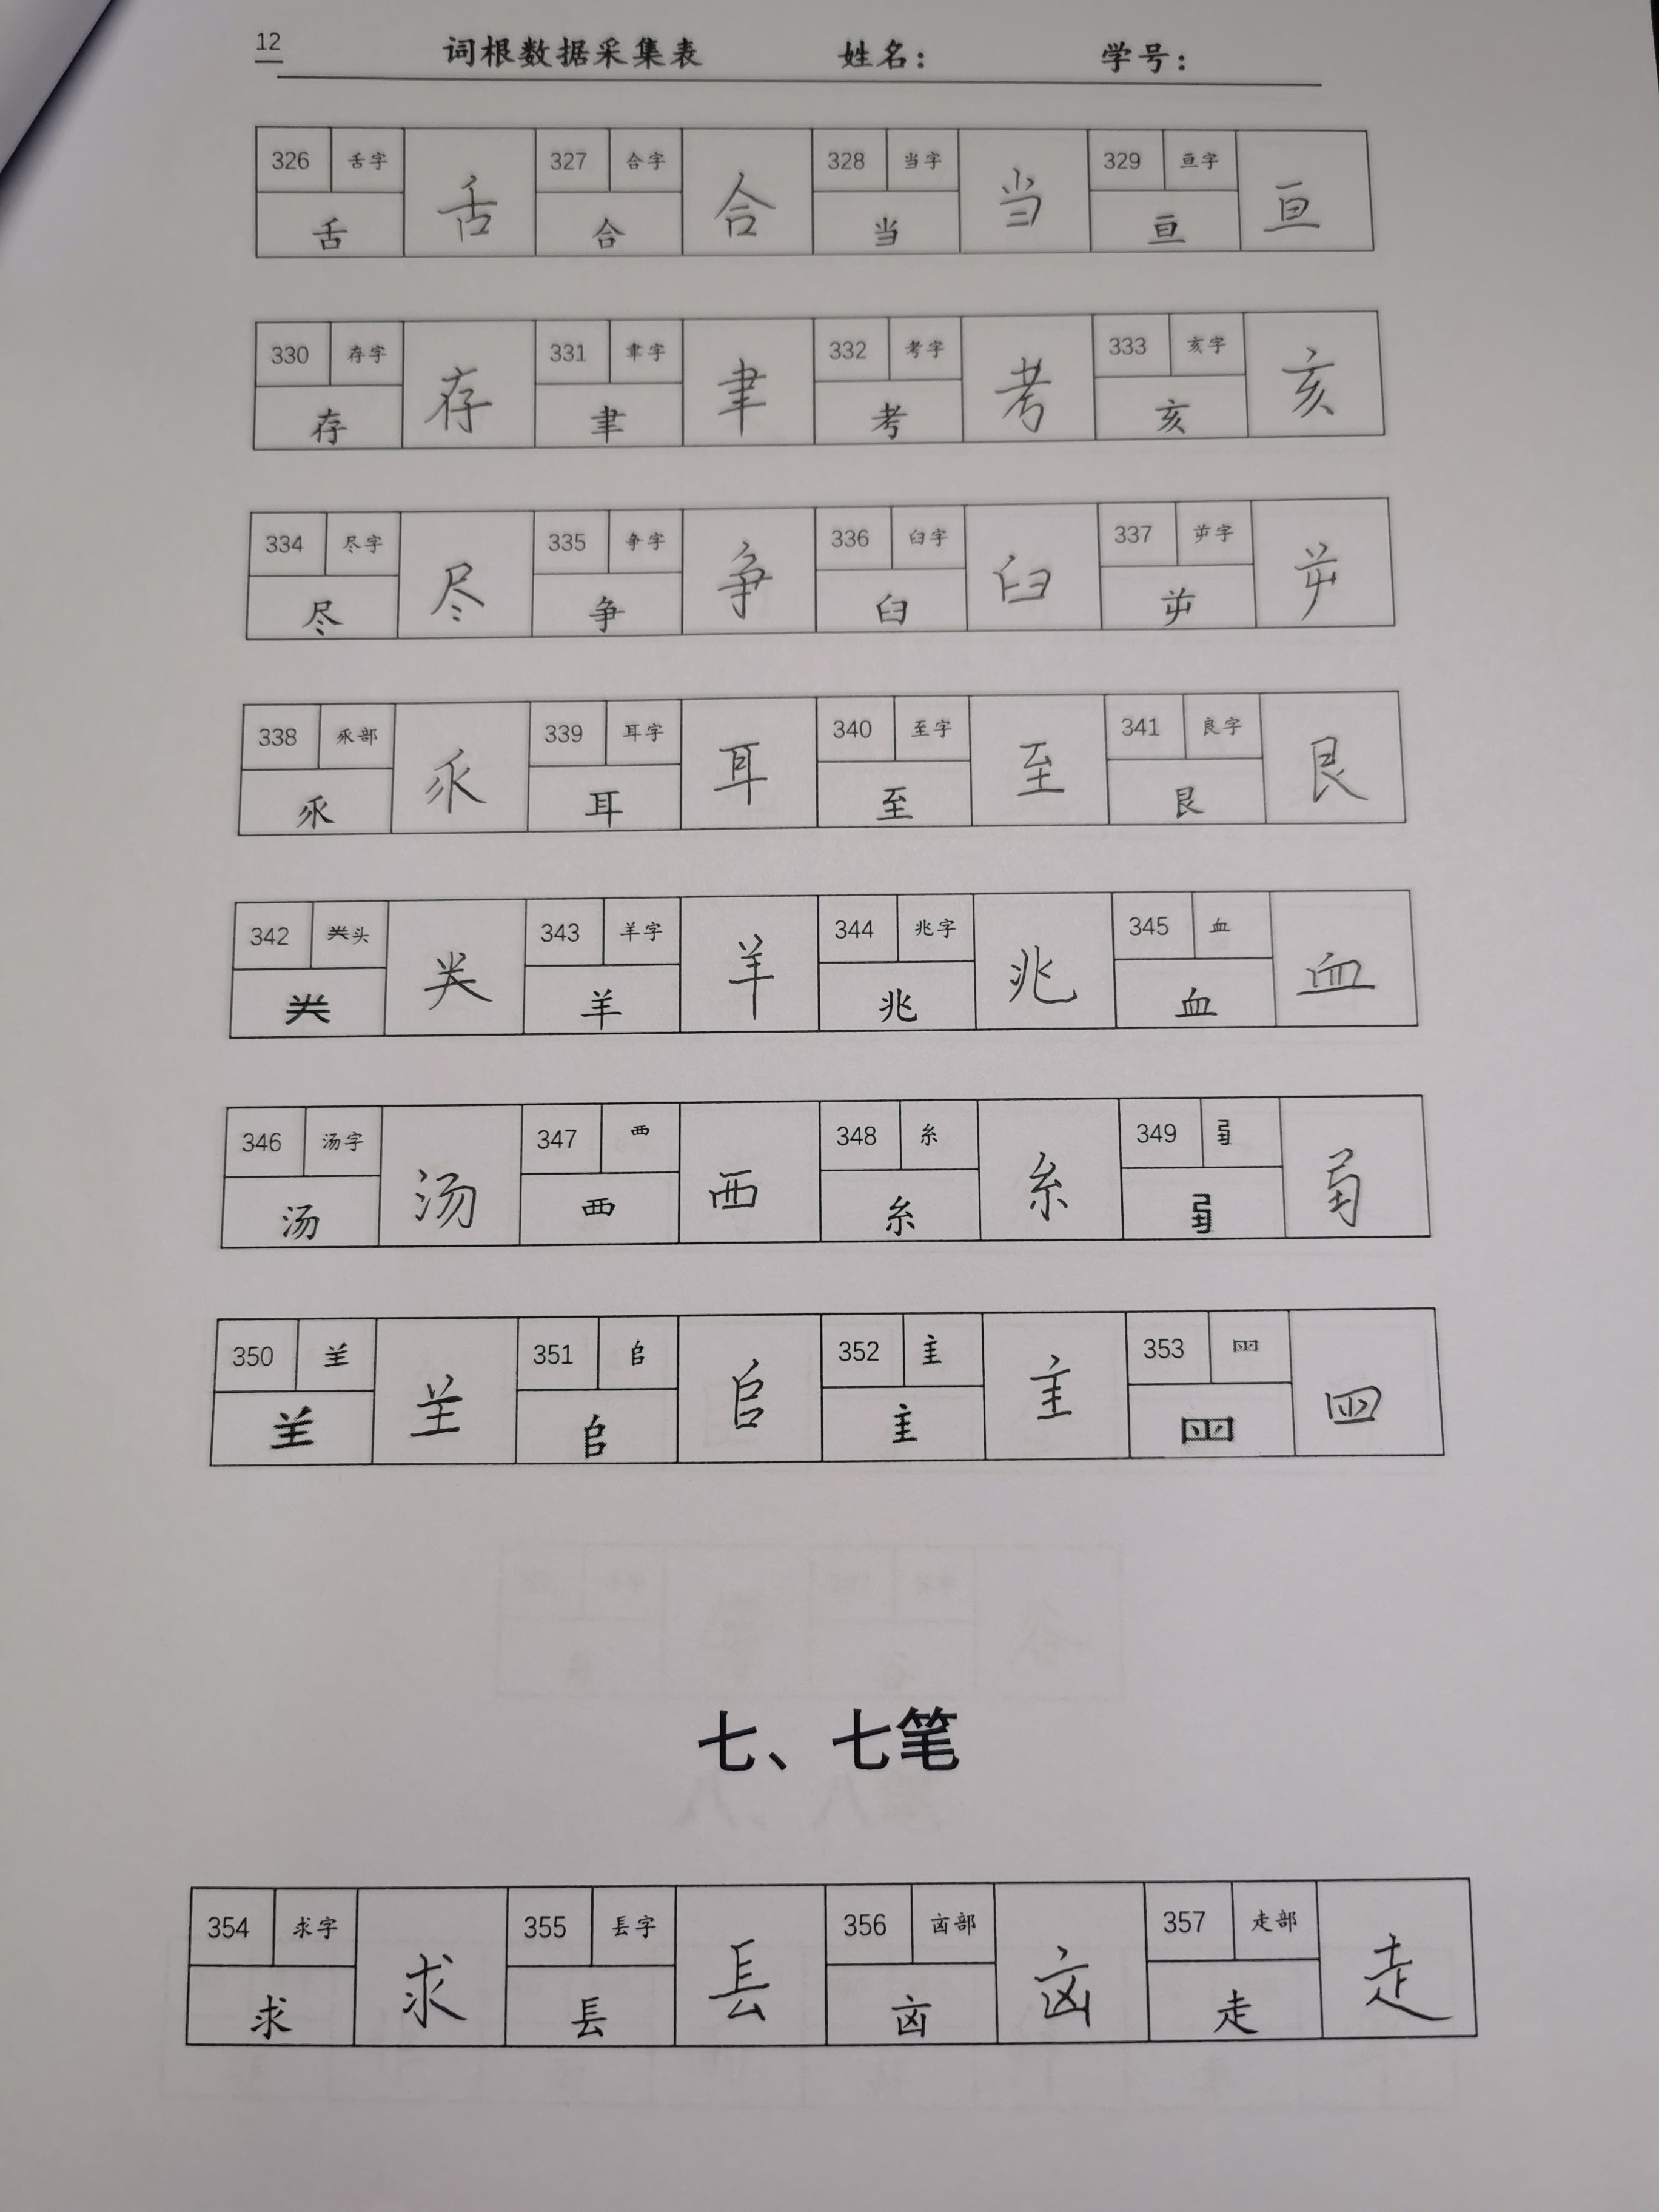 12 词根数据采集表 姓名： 学号：
326 舌字 舌 327 合字 合 328 当字 当 329 亘字 亘
舌 合 当 亘
330 存字 存 331 肀字 332 考字 考 333 亥字 亥
存 考 亥
334 尽字 尽 335 争字 争 336 臼字 臼 337 屰字 屰
尽 争 臼 屰
338 乑部 乑 339 耳字 耳 340 至字 至 341 艮字 艮
乑 耳 至 艮
342 头 343 羊字 羊 344 兆字 兆 345 血 血
羊 兆 血
346 汤字 汤 347 西 西 348 糸 糸 349
汤 西 糸
350 𦍌 351 352 353
354 求字 求 355 镸字 镸 356 部 357 走部 走
求 镸 走
七、七笔